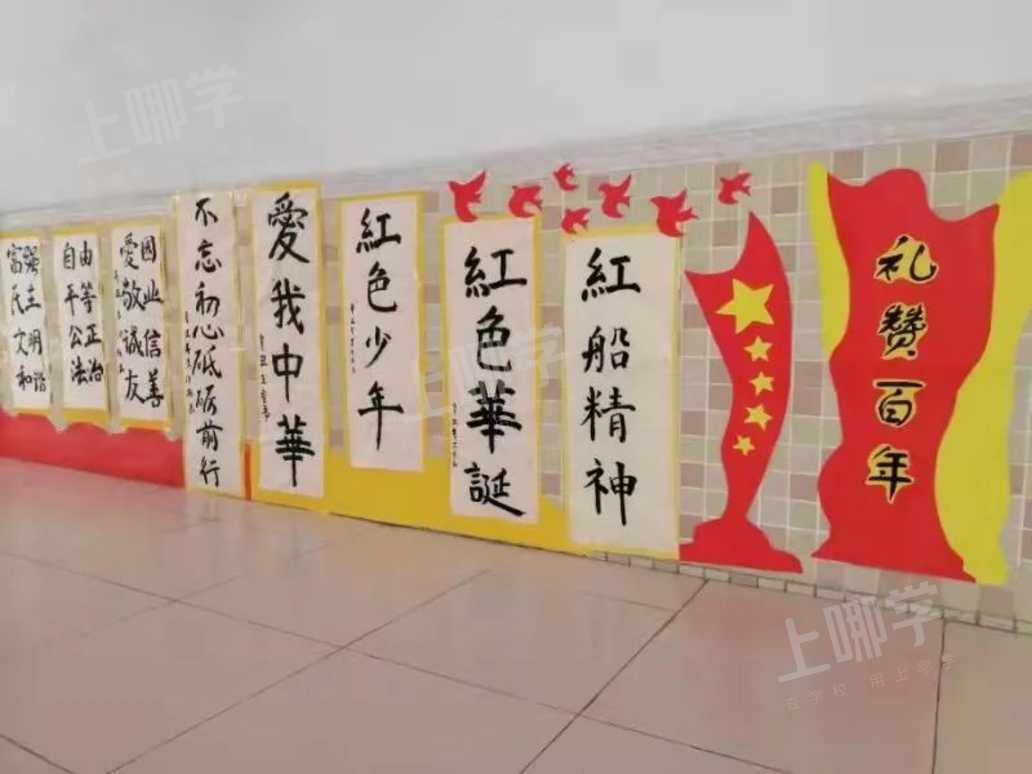 富强
民主
文明
和谐
自由
平等
公正
法治
愛国
敬业
诚信
友善
不忘初心砥砺前行
愛我中華
紅色少年
紅色華誕
紅船精神
礼赞百年
上哪学
上哪学
上哪学
查学校 用上哪学